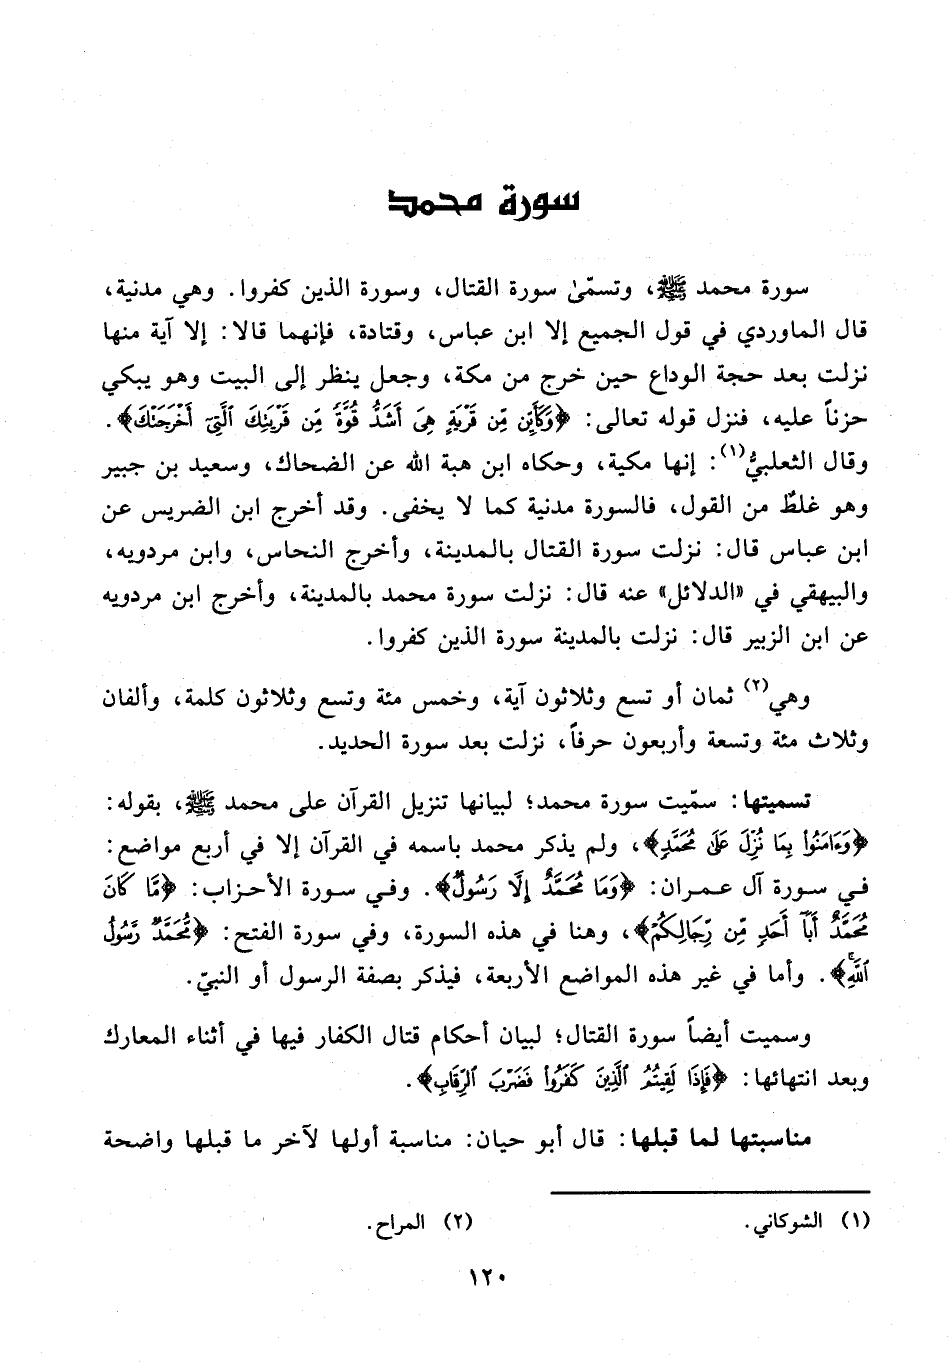 سورة محمد
سورة محمد ﷺ، وتسمّىٰ سورة القتال، وسورة الذين كفروا. وهي مدنية،
قال الماوردي في قول الجميع إلا ابن عباس، وقتادة، فإنهما قالا: إلا آية منها
نزلت بعد حجة الوداع حين خرج من مكة، وجعل ينظر إلى البيت وهو يبكي
حزناً عليه، فنزل قوله تعالى: ﴿وَكَأَيِّن مِّن قَرْيَةٍ هِيَ أَشَدُّ قُوَّةً مِّن قَرْيَتِكَ ٱلَّتِيٓ أَخْرَجَتْكَ﴾.
وقال الثعلبيُّ(١): إنها مكية، وحكاه ابن هبة الله عن الضحاك، وسعيد بن جبير
وهو غلطٌ من القول، فالسورة مدنية كما لا يخفى. وقد أخرج ابن الضريس عن
ابن عباس قال: نزلت سورة القتال بالمدينة، وأخرج النحاس، وابن مردويه،
والبيهقي في «الدلائل» عنه قال: نزلت سورة محمد بالمدينة، وأخرج ابن مردويه
عن ابن الزبير قال: نزلت بالمدينة سورة الذين كفروا.
وهي(٢) ثمان أو تسع وثلاثون آية، وخمس مئة وتسع وثلاثون كلمة، وألفان
وثلاث مئة وتسعة وأربعون حرفاً، نزلت بعد سورة الحديد.
تسميتها: سمّيت سورة محمد؛ لبيانها تنزيل القرآن على محمد ﷺ، بقوله:
﴿وَءَامَنُوا۟ بِمَا نُزِّلَ عَلَىٰ مُحَمَّدٍ﴾، ولم يذكر محمد باسمه في القرآن إلا في أربع مواضع:
في سورة آل عمران: ﴿وَمَا مُحَمَّدٌ إِلَّا رَسُولٌ﴾. وفي سورة الأحزاب: ﴿مَّا كَانَ
مُحَمَّدٌ أَبَآ أَحَدٍ مِّن رِّجَالِكُمْ﴾، وهنا في هذه السورة، وفي سورة الفتح: ﴿مُّحَمَّدٌ رَّسُولُ
ٱللَّهِ﴾. وأما في غير هذه المواضع الأربعة، فيذكر بصفة الرسول أو النبيّ.
وسميت أيضاً سورة القتال؛ لبيان أحكام قتال الكفار فيها في أثناء المعارك
وبعد انتهائها: ﴿فَإِذَا لَقِيتُمُ ٱلَّذِينَ كَفَرُوا۟ فَضَرْبَ ٱلرِّقَابِ﴾.
مناسبتها لما قبلها: قال أبو حيان: مناسبة أولها لآخر ما قبلها واضحة
(١) الشوكاني. (٢) المراح.
١٢٠